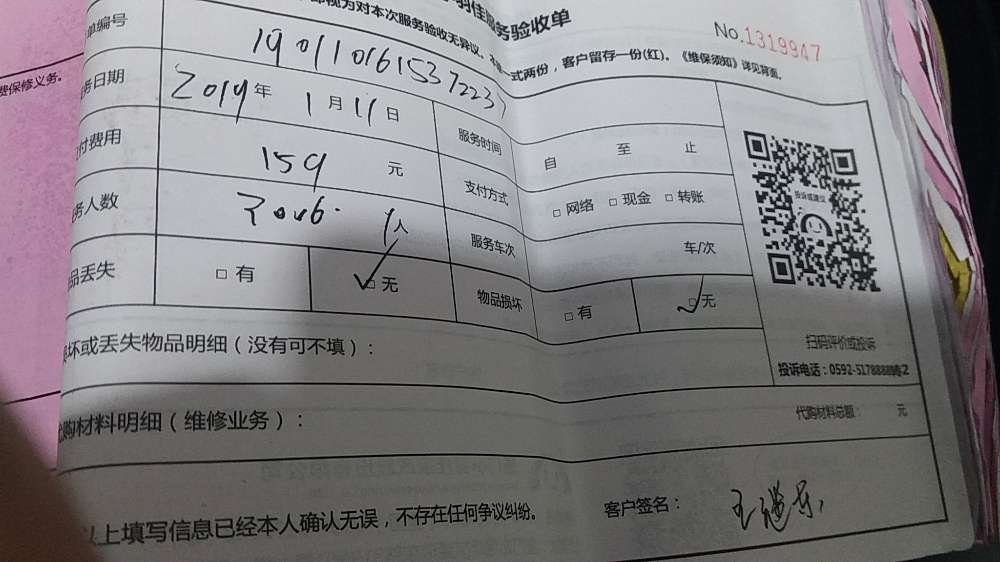 羽佳服务验收单
即视为对本次服务验收无异议。本单一式两份，客户留存一份(红)。《维保须知》详见背面。
No.1319947
费保修义务。
单编号 19011016153722237
务日期 2019年 1月11日 服务时间 自 至 止
付费用 159 元 支付方式 □网络 □现金 □转账
务人数 1人 服务车次 车/次
品丢失 □有 □无 物品损坏 □有 □无
投诉或建议
扫码评价或投诉
投诉电话：0592-5178888
坏或丢失物品明细（没有可不填）：
代购材料明细（维修业务）： 代购材料总额： 元
以上填写信息已经本人确认无误，不存在任何争议纠纷。 客户签名：